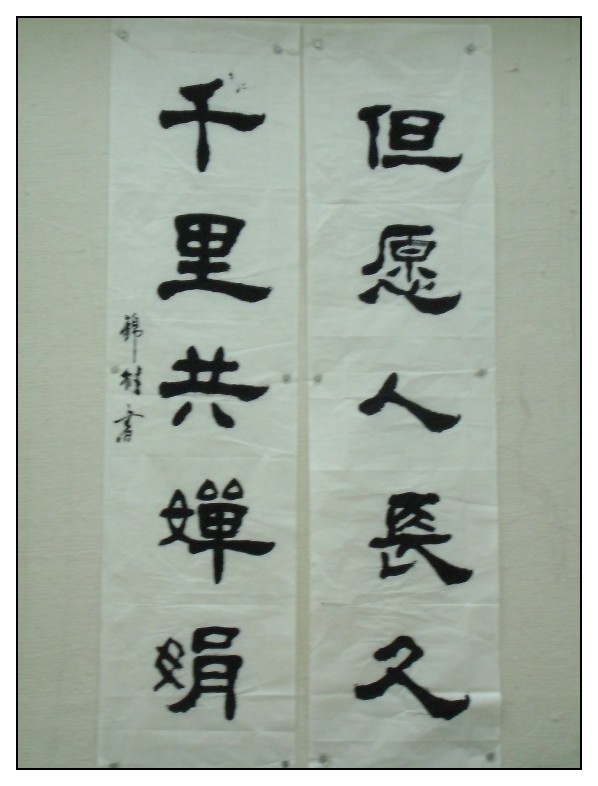 但愿人長久
千里共嬋娟
錦桂書